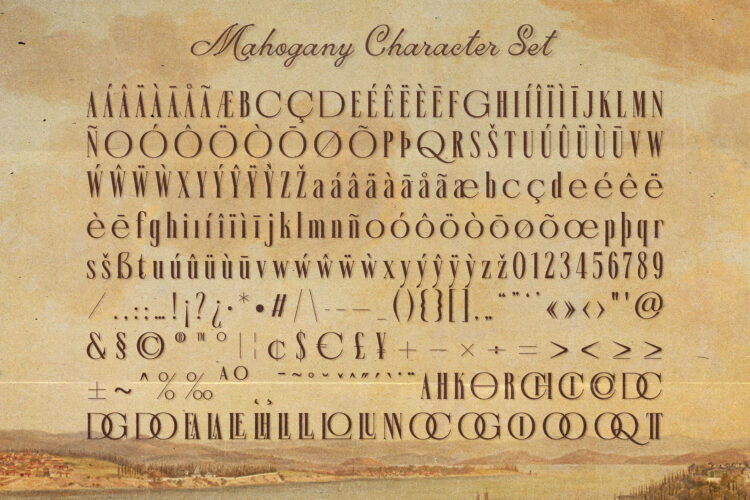 Mahogany Character Set
AÁÂÄÀĀÅÃÆBCÇDEÉÊËÈĒFGHIÍÎÏÌĪJKLMN
ÑOÓÔÖÒŌØÕPÞQRSŠTUÚÛÜÙŪVW
ẂŴẄẀXYÝŶŸỲZŽaáâäàāåãæbcçdeéêë
èēfghiıíîïìījklmnñoóôöòōøõœpþqr
sšßtuúûüùūvwẃŵẅẁxyýŷÿỳzž0123456789
/.,:;…!¡?¿·*•#/\-–—_(){}[]‚„“”‘’«»‹›"'@
&§©®™°|¦¢$€£¥+−×÷=><≥≤
±~^%‰
AHKORCHCICODC